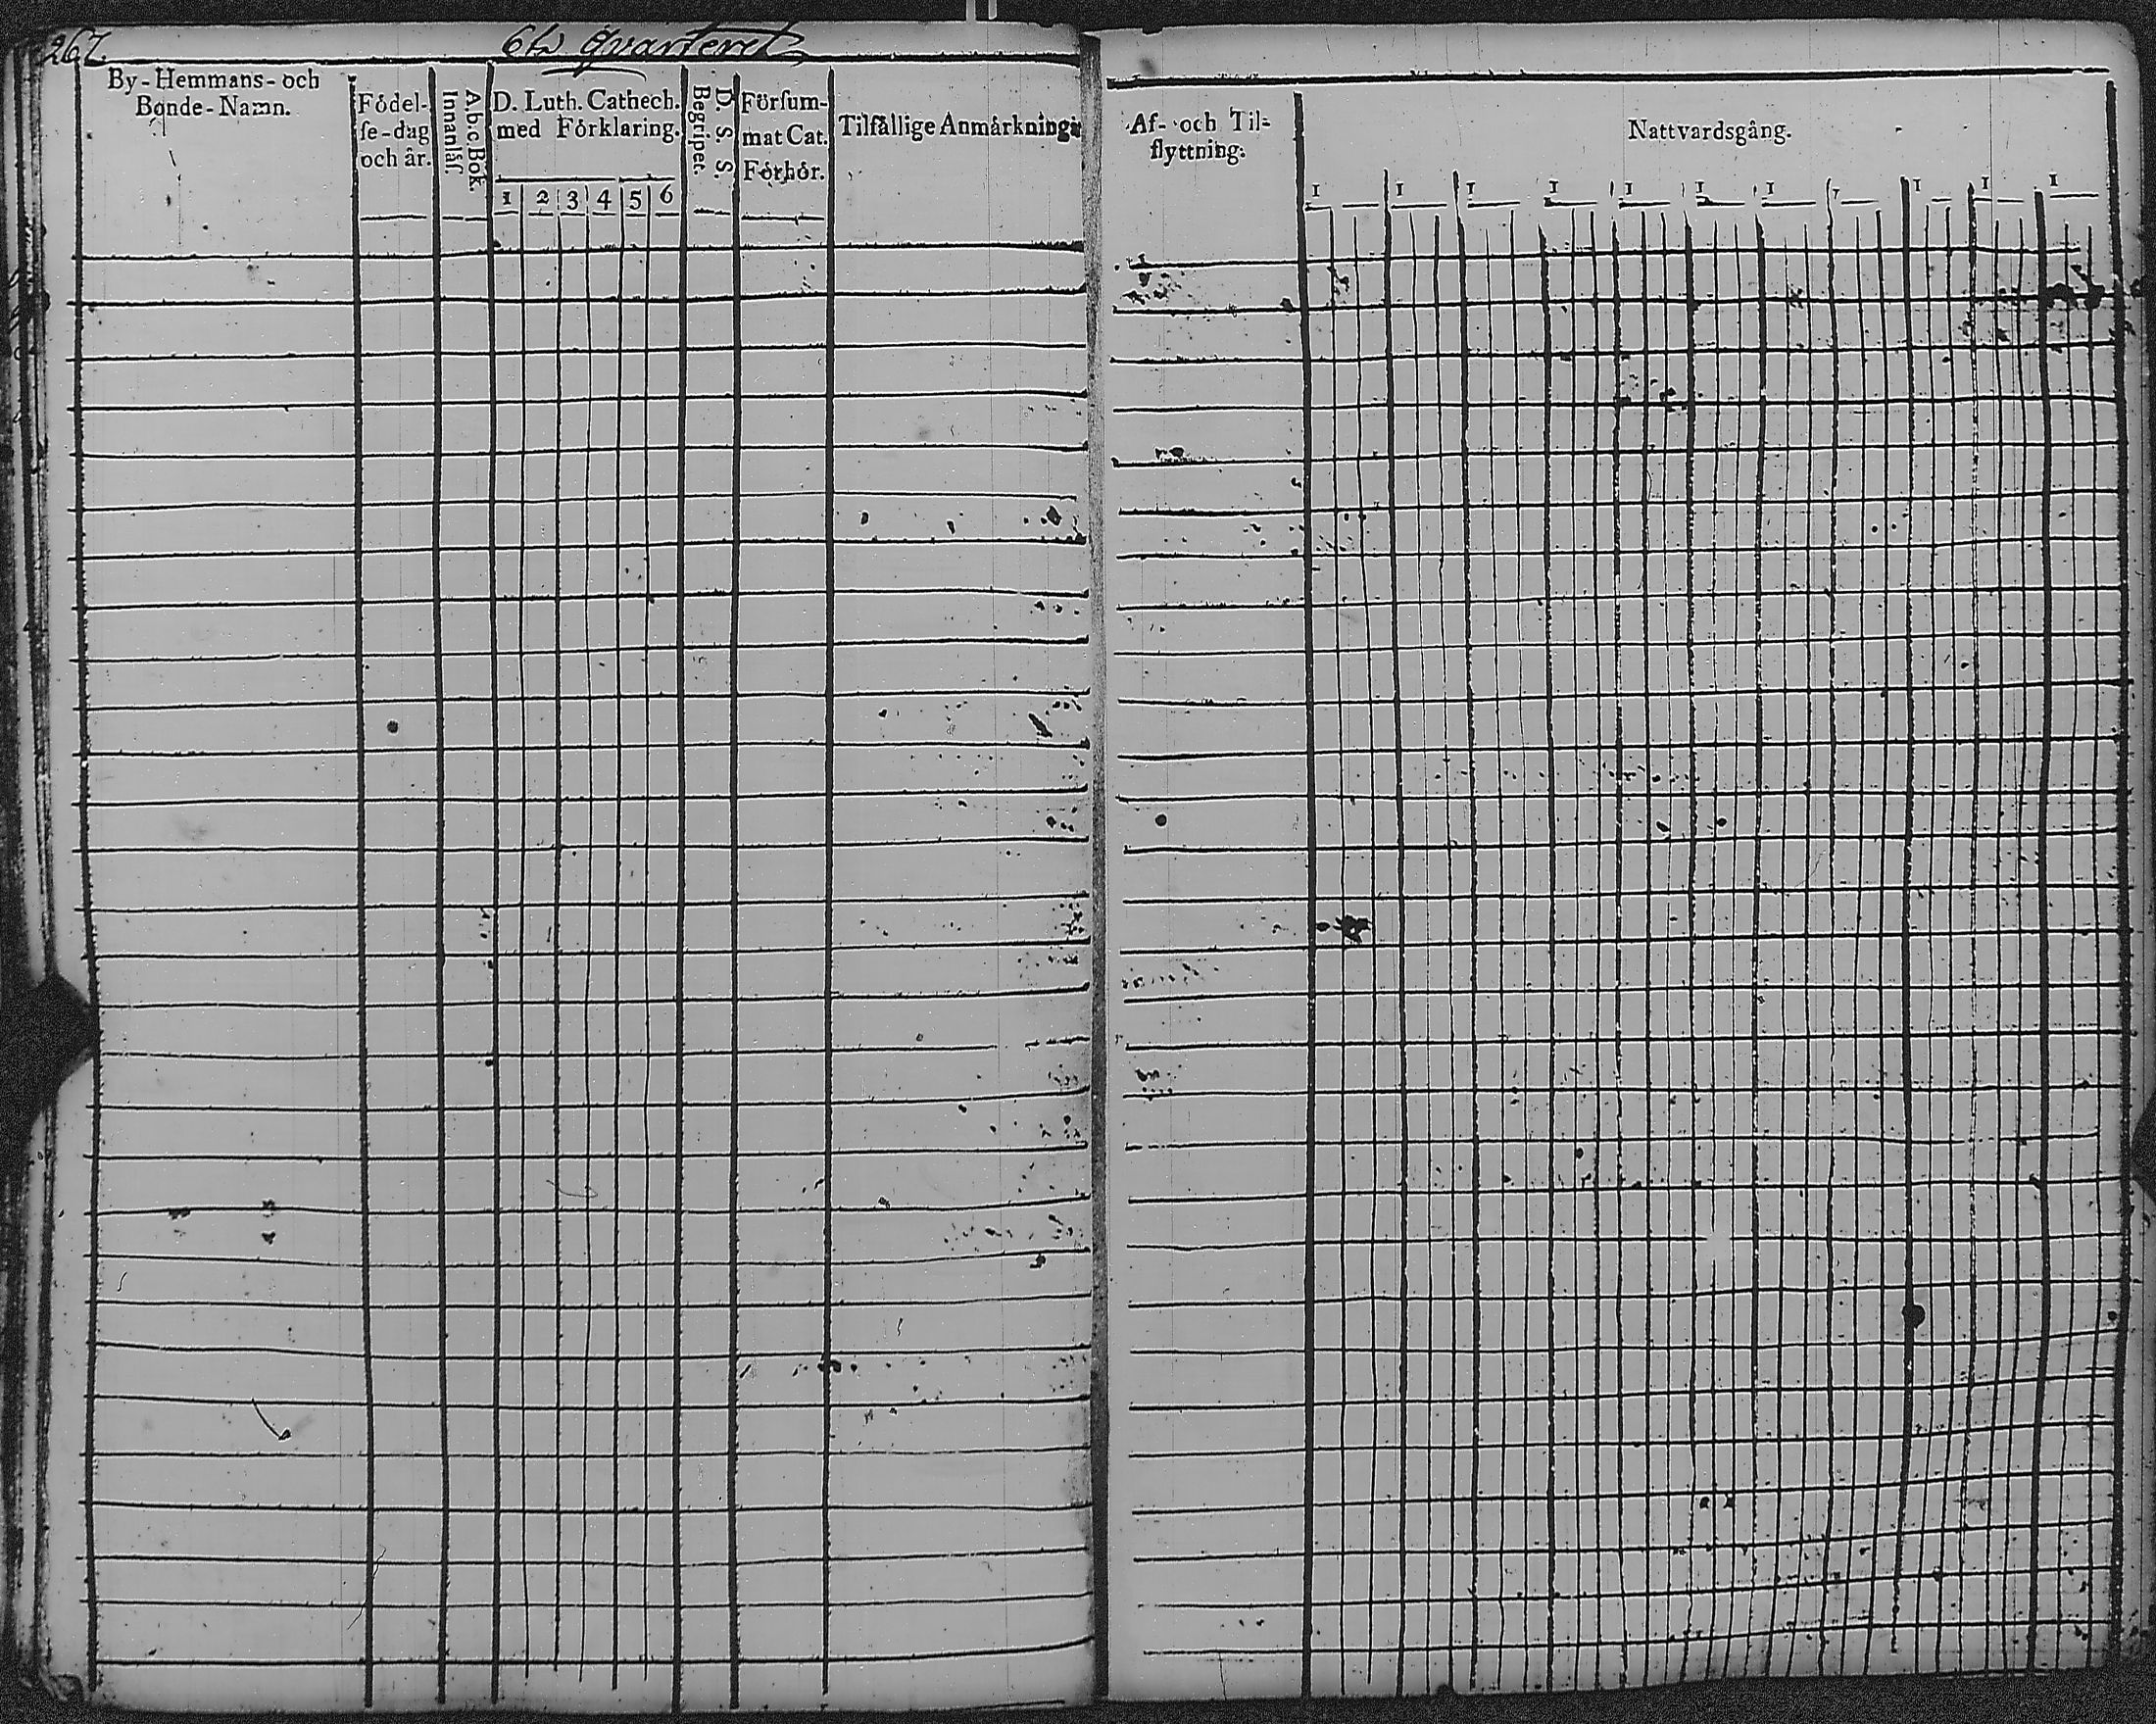 267.
6te Qvarteret
By-Hemmans- och
Bonde-Namn.
Födel-
ſe-dag
och år.
Ab.c.Bok.
Innanläſ.
D. Luth. Cathech.
med Förklaring.
1 2 3 4 5 6
D. S. S.
Begriper.
Förſum-
mat Cat.
Förhör.
Tilfällige Anmärkningar
Af- och Til-
flyttning.
Nattvardsgång.
1 1 1 1 1 1 1 1 1 1 1